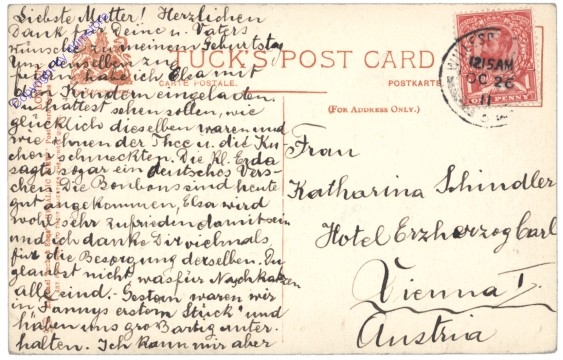 Liebste Mutter! Herzlichen
Dank für Deine u. Vaters
wünsche zu meinem Geburtstag
Um denselben zu
feiern habe ich Elsa mit
den Kindern eingeladen.
hättest sehen sollen, wie
glücklich dieselben waren und
wie ihnen der Thee u. die Ku-
chen schmeckten. Die Kl. Erda
sagte sogar ein deutsches Vers-
chen. Die Bonbons sind heute
gut angekommen, Elsa wird
wohl sehr zufrieden damit sein
und ich danke Dir vielmals
für die Besorgung derselben. Du
glaubst nicht was für Naschkatzen
alle sind. - Gestern waren wir
in "Fannys erstem Stück" und
haben uns großartig unter.
halten. Ich kann mir aber
TUCK'S POST CARD
CARTE POSTALE.
POSTKARTE
(FOR ADDRESS ONLY.)
12.15AM
OC 26
11
ONE PENNY
Frau
Katharina Schindler
Hotel Erzherzog Carl
Vienna I.
Austria